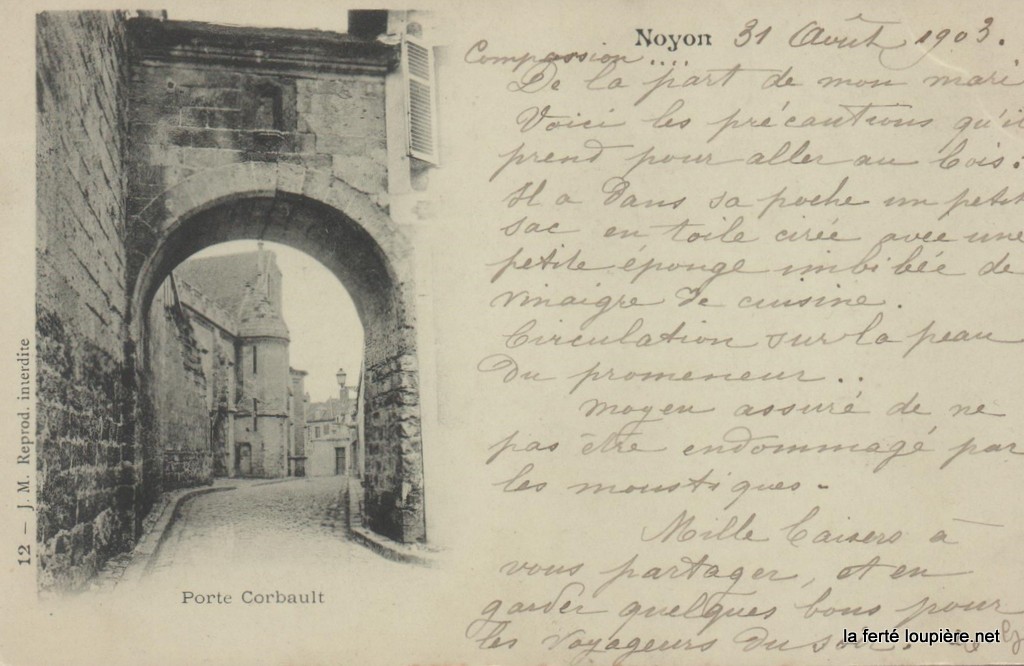 Noyon 31 Août 1903.
Compassion....
De la part de mon mari
Voici les précautions qu'il
prend pour aller au bois.
Il a dans sa poche un petit
sac en toile cirée avec une
petite éponge imbibée de
vinaigre de cuisine.
Circulation sur la peau
du promeneur..
Moyen assuré de ne
pas être endommagé par
les moustiques.
Mille baisers à
vous partager, et en
garder quelques bons pour
les voyageurs du soir.
12 — J. M. Reprod. interdite
Porte Corbault
la ferté loupière.net